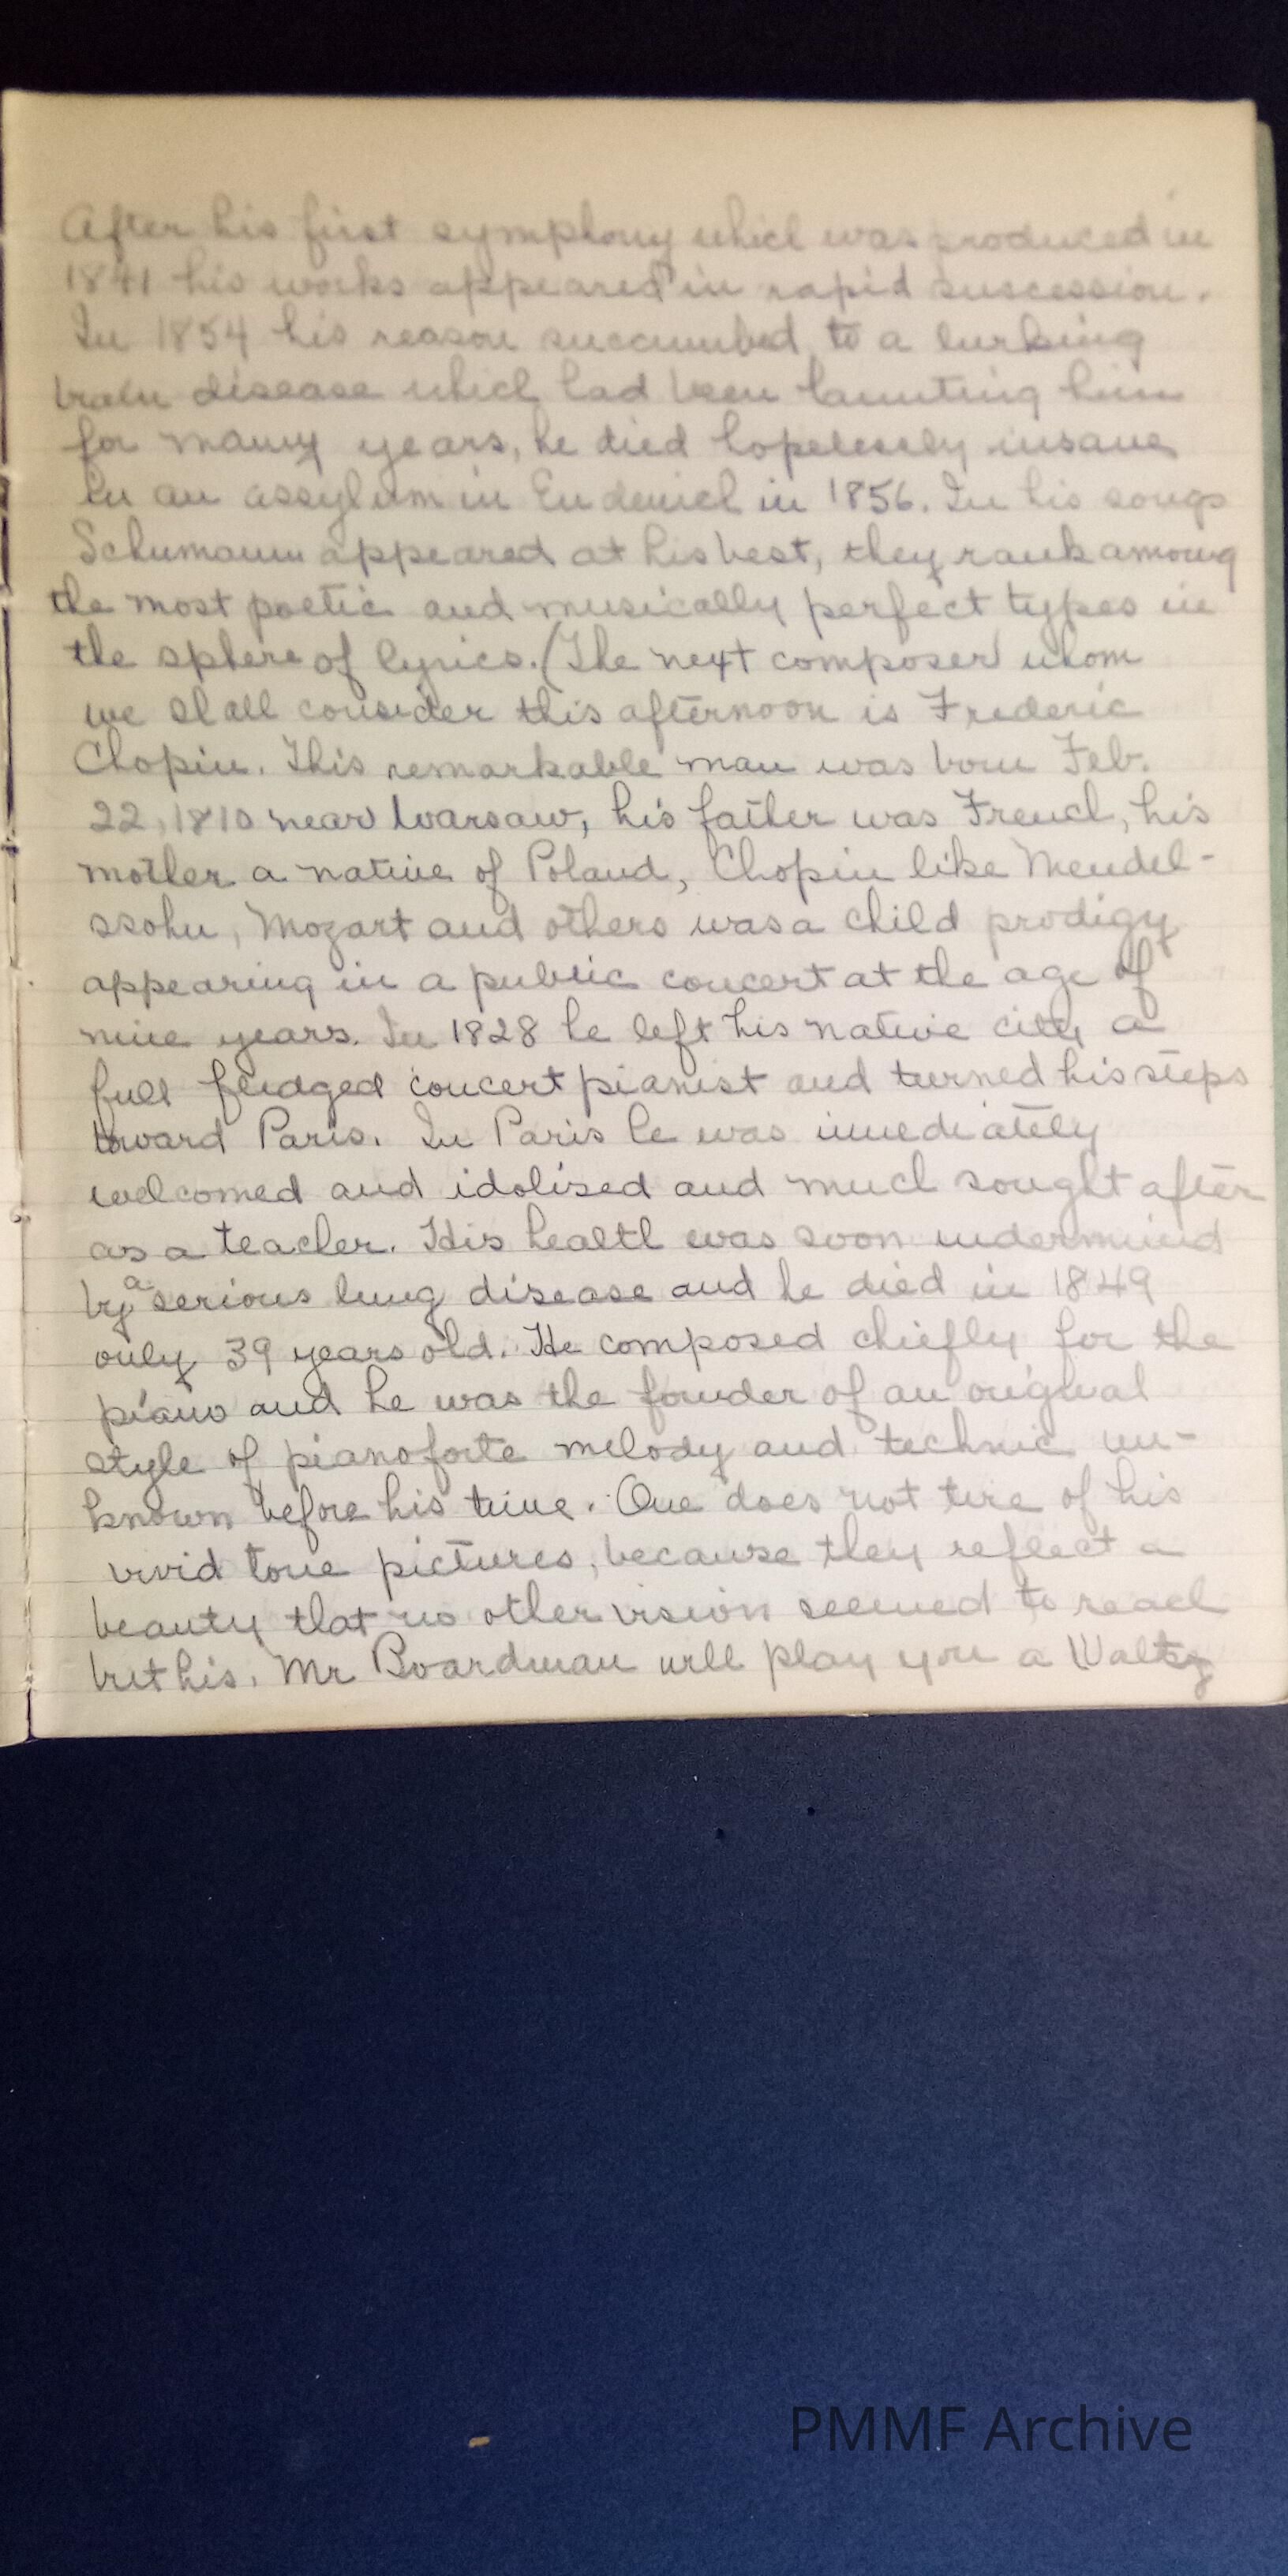 After his first symphony which was produced in
1841 his works appeared in rapid suscession.
In 1854 his reason succumbed to a lurking
brain disease which had been taunting him
for many years, he died hopelessly insane
in an assylum in Endenich in 1856. In his songs
Schumann appeared at his best, they rank among
the most poetic and musically perfect types in
the sphere of lyrics. (The next composer whom
we shall consider this afternoon is Frederic
Chopin. This remarkable man was born Feb.
22, 1810 near Warsaw, his father was French, his
mother a native of Poland, Chopin like Mendel-
ssohn, Mozart and others was a child prodigy
appearing in a public concert at the age of
nine years. In 1828 he left his native city a
full fledged concert pianist and turned his steps
toward Paris. In Paris he was immediately
welcomed and idolised and much sought after
as a teacher. His health was soon undermined
by a serious lung disease and he died in 1849
only 39 years old. He composed chiefly for the
piano and he was the founder of an original
style of pianoforte melody and technic un-
known before his time. One does not tire of his
vivid tone pictures, because they reflect a
beauty that no other vision seemed to reach
but his. Mr Boardman will play you a Waltz
PMMF Archive